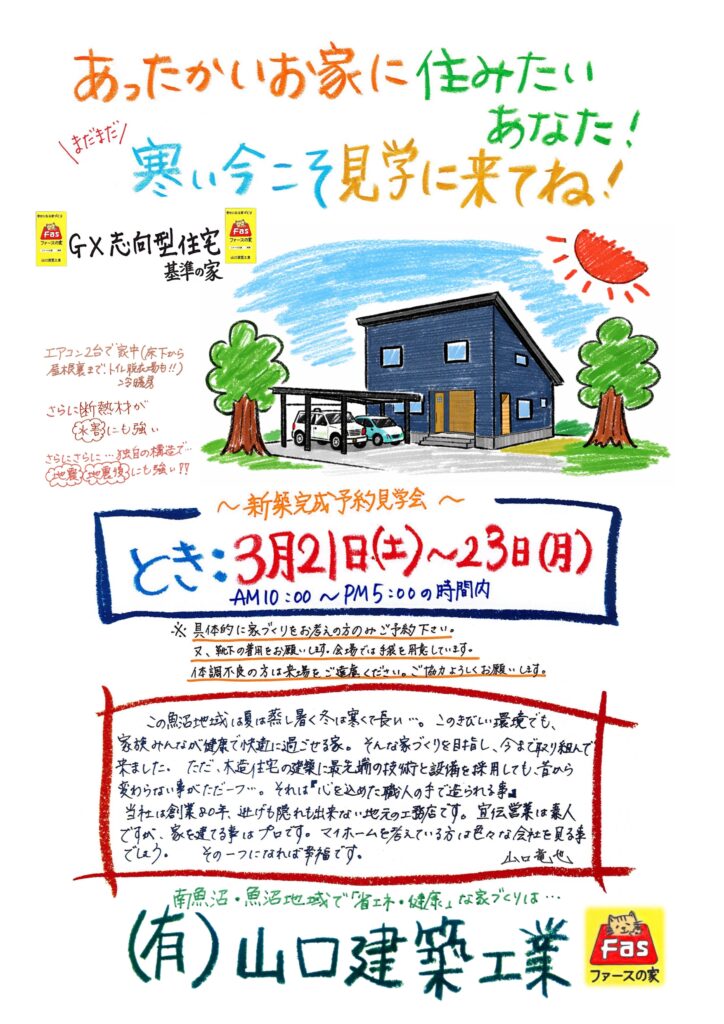 あったかいお家に住みたい
あなた!
まだまだ
寒い今こそ見学に来てね!
Fas
ファースの家
山口建築工業
GX志向型住宅
基準の家
Fas
ファースの家
山口建築工業
エアコン2台で家中(床下から
屋根裏まで、トイレ脱衣場も!!)
冷暖房
さらに断熱材が
水害にも強い
さらにさらに…独自の構造で…
地震 地震後にも強い⁇
～新築完成予約見学会～
とき:3月21日(土)～23日(月)
AM10:00～PM5:00の時間内
※具体的に家づくりをお考えの方のみご予約下さい。
又、靴下の着用をお願いします。会場では手袋を用意しています。
体調不良の方は来場をご遠慮ください。ご協力よろしくお願いします。
この魚沼地域は夏は蒸し暑く冬は寒くて長い…。このきびしい環境でも、
家族みんなが健康で快適に過ごせる家。そんな家づくりを目指し、今まで取り組んで
来ました。ただ、木造住宅の建築に最先端の技術と設備を採用しても、昔から
変わらない事がただ一つ…。それは『心を込めた職人の手で造られる事』
当社は創業80年、逃げも隠れも出来ない地元の工務店です。宣伝営業は素人
ですが、家を建てる事はプロです。マイホームを考えている方は色々な会社を見る事
でしょう。その一つになれば幸福です。 山口竜也
南魚沼・魚沼地域で「省エネ・健康」な家づくりは…
(有)山口建築工業
Fas
ファースの家